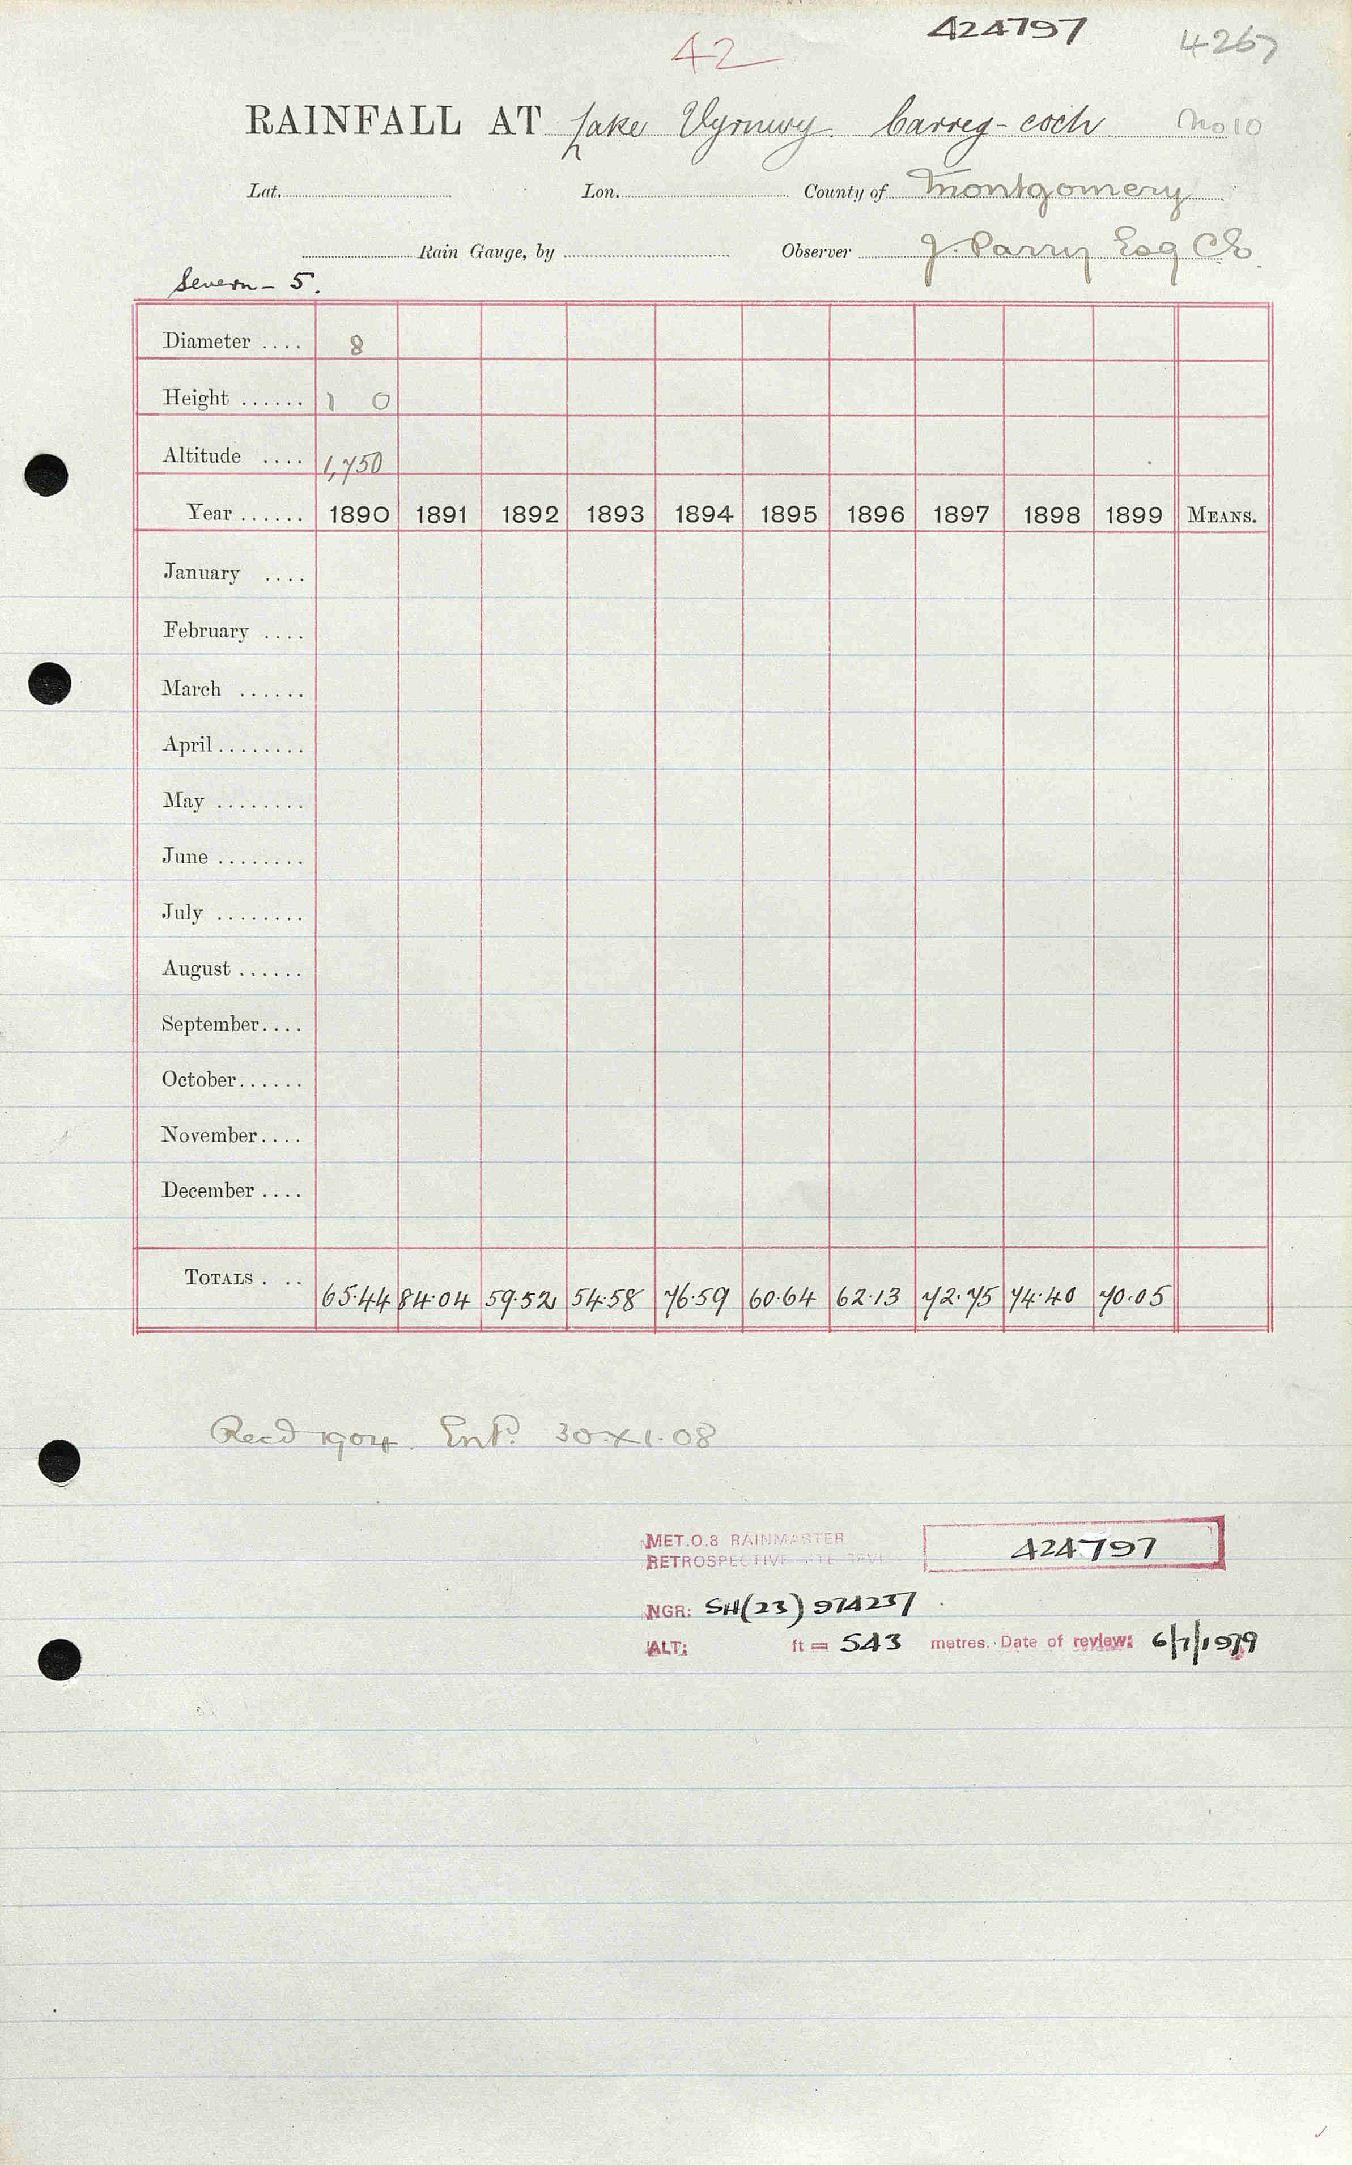 424797
42 4267
RAINFALL AT Lake Vyrnwy Carreg-coch No 10
Lat. Lon. County of Montgomery
Rain Gauge, by Observer J. Parry Esq CE
Severn - 5.
Diameter .... 8
Height ...... 1 0
Altitude .... 1,750
Year ...... 1890 1891 1892 1893 1894 1895 1896 1897 1898 1899 MEANS.
January ....
February ....
March ......
April ........
May ........
June ........
July ........
August ......
September....
October......
November....
December ....
TOTALS . .. 65.44 84.04 59.52 54.58 76.59 60.64 62.13 72.75 74.40 70.05
Recd 1904. Entd. 30.XI.08
MET.O.8 RAINMASTER
RETROSPECTIVE SITE 424797
NGR: SH(23) 974237
ALT: ft = 543 metres. Date of review: 6/7/1979